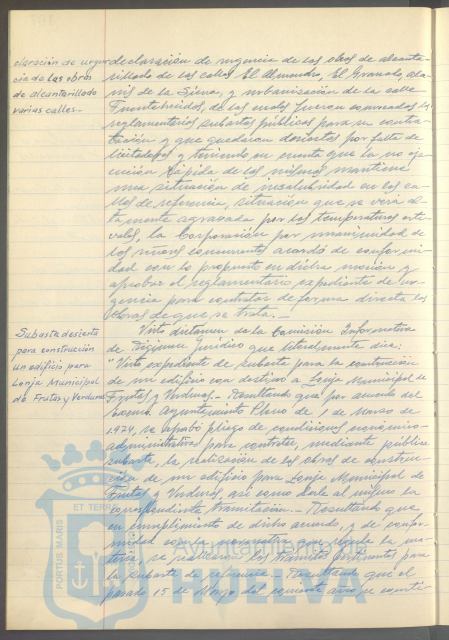 claración de urgen
cia de las obras
de alcantarillado
varias calles.-
declaración de urgencia de las obras de alcanta-
rillado de las calles El Almendro, El Granado, Ala-
nís de la Sierra, y urbanización de la calle
Fuenteheridos, de las cuales fueron convocadas las
reglamentarias subastas públicas para su contra-
tación y que quedaron desiertas por falta de
licitadores y teniendo en cuenta que la no eje-
cución rápida de los mismos mantiene
una situación de insalubridad en las ca-
lles de referencia, situación que se verá al-
tamente agravada por las temperaturas esti-
vales, la Corporación por unanimidad de
los señores concurrentes acordó de conformi-
dad con lo propuesto en dicha moción y
aprobar el reglamentario expediente de ur-
gencia para contratar de forma directa las
obras de que se trata.-
Subasta desierta
para construcción
un edificio para
Lonja Municipal
de Frutas y Verduras
Visto dictamen de la Comisión Informativa
de Régimen Jurídico que literalmente dice:
"Visto expediente de subasta para la contratación
de un edificio con destino a Lonja Municipal de
Frutas y Verduras.- Resultando que por acuerdo del
Excmo. Ayuntamiento Pleno de 1 de Marzo de
1.974, se aprobó pliego de condiciones económico-
administrativas para contratar, mediante pública
subasta, la realización de las obras de construc-
ción de un edificio para Lonja Municipal de
Frutas y Verduras, así como darle al mismo la
correspondiente tramitación.- Resultando que
en cumplimiento de dicho acuerdo, y de confor-
midad con la normativa que regula la ma-
teria, se realizaron los trámites pertinentes para
la subasta de referencia.- Resultando que el
pasado 15 de Mayo del corriente año, se consti-
PORTUS MARIS
ET TERRAE
Ayuntamiento
HUELVA